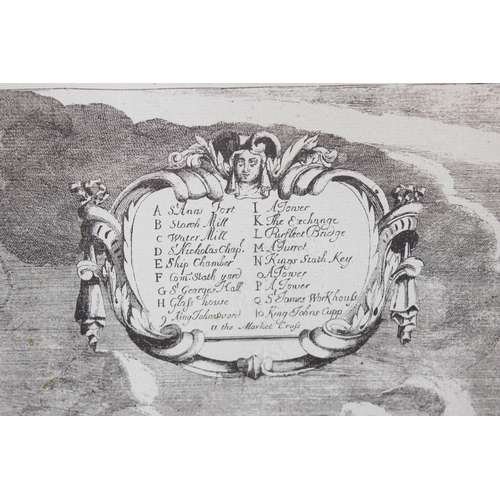 A St Anns Fort
B Starch Mill
C Water Mill
D St Nicholas Chap.
E Ship Chamber
F Com. Stath yard
G St Georges Hall
H Glass house
9 King Johns sword
I A Tower
K The Exchange
L Purfleet Bridge
M A Turret
N Kings Stath Key
O A Tower
P A Tower
Q St James Workhouse
10 King Johns Cupp
11 the Market Cross